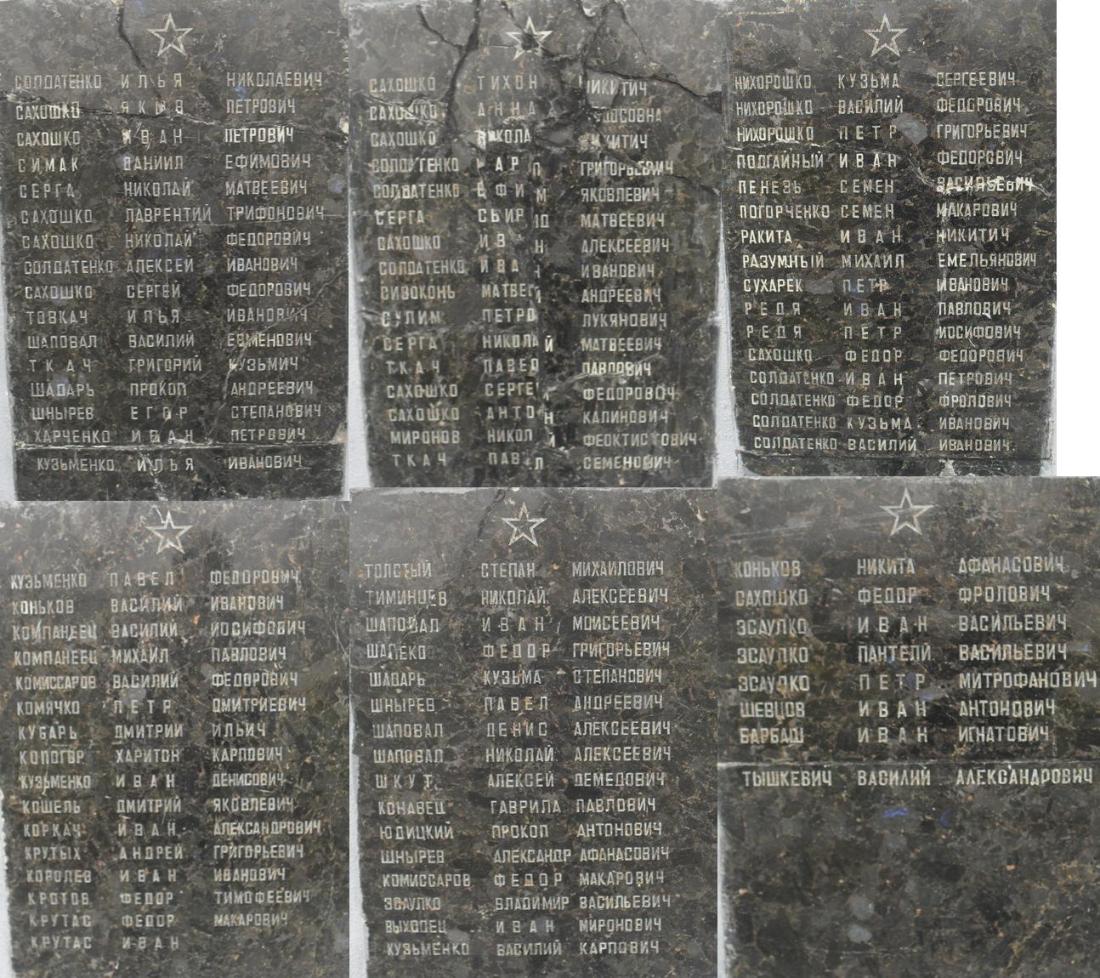 СОЛДАТЕНКО ИЛЬЯ НИКОЛАЕВИЧ
САХОШКО ЯКОВ ПЕТРОВИЧ
САХОШКО ИВАН ПЕТРОВИЧ
СИМАК ДАНИИЛ ЕФИМОВИЧ
СЕРГА НИКОЛАЙ МАТВЕЕВИЧ
САХОШКО ЛАВРЕНТИЙ ТРИФОНОВИЧ
САХОШКО НИКОЛАЙ ФЕДОРОВИЧ
СОЛДАТЕНКО АЛЕКСЕЙ ИВАНОВИЧ
САХОШКО СЕРГЕЙ ФЕДОРОВИЧ
ТОВКАЧ ИЛЬЯ ИВАНОВИЧ
ШАПОВАЛ ВАСИЛИЙ
ТКАЧ ГРИГОРИЙ КУЗЬМИЧ
ШАДАРЬ ПРОКОП АНДРЕЕВИЧ
ШНЫРЕВ ЕГОР СТЕПАНОВИЧ
ХАРЧЕНКО ИВАН ПЕТРОВИЧ
КУЗЬМЕНКО ИЛЬЯ ИВАНОВИЧ
САХОШКО ТИХОН НИКИТИЧ
САХОШКО АННА
САХОШКО НИКОЛА НИКИТИЧ
СОЛДАТЕНКО КАРП ГРИГОРЬЕВИЧ
СОЛДАТЕНКО ЕФИМ ЯКОВЛЕВИЧ
СЕРГА МАТВЕЕВИЧ
САХОШКО ИВАН АЛЕКСЕЕВИЧ
СОЛДАТЕНКО ИВАН ИВАНОВИЧ
СИВОКОНЬ МАТВЕЙ АНДРЕЕВИЧ
СУЛИМ ПЕТРО ЛУКЯНОВИЧ
СЕРГА НИКОЛАЙ МАТВЕЕВИЧ
ТКАЧ ПАВЕЛ ПАВЛОВИЧ
САХОШКО СЕРГЕЙ ФЕДОРОВИЧ
САХОШКО АНТОН КАЛИНОВИЧ
МИРОНОВ НИКОЛ ФЕОКТИСТОВИЧ
ТКАЧ ПАВЕЛ СЕМЕНОВИЧ
НИХОРОШКО КУЗЬМА СЕРГЕЕВИЧ
НИХОРОШКО ВАСИЛИЙ ФЕДОРОВИЧ
НИХОРОШКО ПЕТР ГРИГОРЬЕВИЧ
ПОДГАЙНЫЙ ИВАН ФЕДОРОВИЧ
ПЕНЕЗЬ СЕМЕН ВАСИЛЬЕВИЧ
ПОГОРЧЕНКО СЕМЕН МАКАРОВИЧ
РАКИТА ИВАН НИКИТИЧ
РАЗУМНЫЙ МИХАИЛ ЕМЕЛЬЯНОВИЧ
СУХАРЕК ПЕТР ИВАНОВИЧ
РЕДЯ ИВАН ПАВЛОВИЧ
РЕДЯ ПЕТР ИОСИФОВИЧ
САХОШКО ФЕДОР ФЕДОРОВИЧ
СОЛДАТЕНКО ИВАН ПЕТРОВИЧ
СОЛДАТЕНКО ФЕДОР ФРОЛОВИЧ
СОЛДАТЕНКО КУЗЬМА ИВАНОВИЧ
СОЛДАТЕНКО ВАСИЛИЙ ИВАНОВИЧ
КУЗЬМЕНКО ПАВЕЛ ФЕДОРОВИЧ
КОНЬКОВ ВАСИЛИЙ ИВАНОВИЧ
КОМПАНЕЕЦ ВАСИЛИЙ ИОСИФОВИЧ
КОМПАНЕЕЦ МИХАИЛ ПАВЛОВИЧ
КОМИССАРОВ ВАСИЛИЙ ФЕДОРОВИЧ
КОМЯЧКО ПЕТР ДМИТРИЕВИЧ
КУБАРЬ ДМИТРИЙ ИЛЬИЧ
ХАРИТОН КАРПОВИЧ
КУЗЬМЕНКО ИВАН ДЕНИСОВИЧ
КОШЕЛЬ ДМИТРИЙ ЯКОВЛЕВИЧ
КОРКАЧ ИВАН АЛЕКСАНДРОВИЧ
КРУТЫХ АНДРЕЙ ГРИГОРЬЕВИЧ
КОРОЛЕВ ИВАН ИВАНОВИЧ
КРОТОВ ФЕДОР ТИМОФЕЕВИЧ
КРУТАС ФЕДОР МАКАРОВИЧ
КРУТАС ИВАН
ТОЛСТЫЙ СТЕПАН МИХАЙЛОВИЧ
ТИМИНЦЕВ НИКОЛАЙ АЛЕКСЕЕВИЧ
ШАПОВАЛ ИВАН МОИСЕЕВИЧ
ШАПЕКО ФЕДОР ГРИГОРЬЕВИЧ
ШАДАРЬ КУЗЬМА СТЕПАНОВИЧ
ШНЫРЕВ ПАВЕЛ АНДРЕЕВИЧ
ШАПОВАЛ ДЕНИС АЛЕКСЕЕВИЧ
ШАПОВАЛ НИКОЛАЙ АЛЕКСЕЕВИЧ
ШКУТ АЛЕКСЕЙ ДЕМЕДОВИЧ
КОНАВЕЦ ГАВРИЛА ПАВЛОВИЧ
ЮДИЦКИЙ ПРОКОП АНТОНОВИЧ
ШНЫРЕВ АЛЕКСАНДР АФАНАСОВИЧ
КОМИССАРОВ ФЕДОР МАКАРОВИЧ
ЭСАУЛКО ВЛАДИМИР ВАСИЛЬЕВИЧ
ВЫХОДЕЦ ИВАН МИРОНОВИЧ
КУЗЬМЕНКО ВАСИЛИЙ КАРПОВИЧ
КОНЬКОВ НИКИТА АФАНАСОВИЧ
САХОШКО ФЕДОР ФРОЛОВИЧ
ЭСАУЛКО ИВАН ВАСИЛЬЕВИЧ
ЭСАУЛКО ПАНТЕЛИ ВАСИЛЬЕВИЧ
ЭСАУЛКО ПЕТР МИТРОФАНОВИЧ
ШЕВЦОВ ИВАН АНТОНОВИЧ
БАРБАШ ИВАН ИГНАТОВИЧ
ТЫШКЕВИЧ ВАСИЛИЙ АЛЕКСАНДРОВИЧ